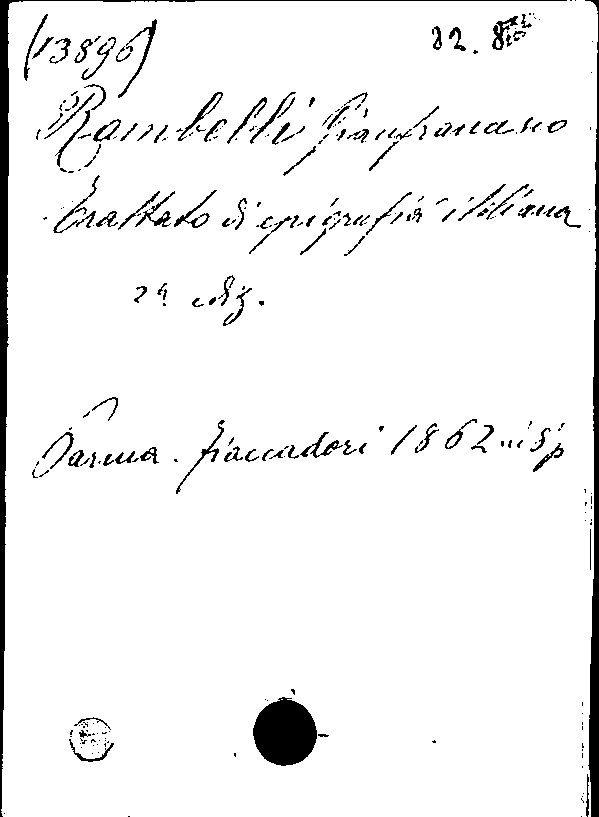 (13896) 82.
Rambelli Gianfrancesco
Trattato di epigrafia italiana
2ª ediz.
Parma. Fiaccadori 1862 in 8°